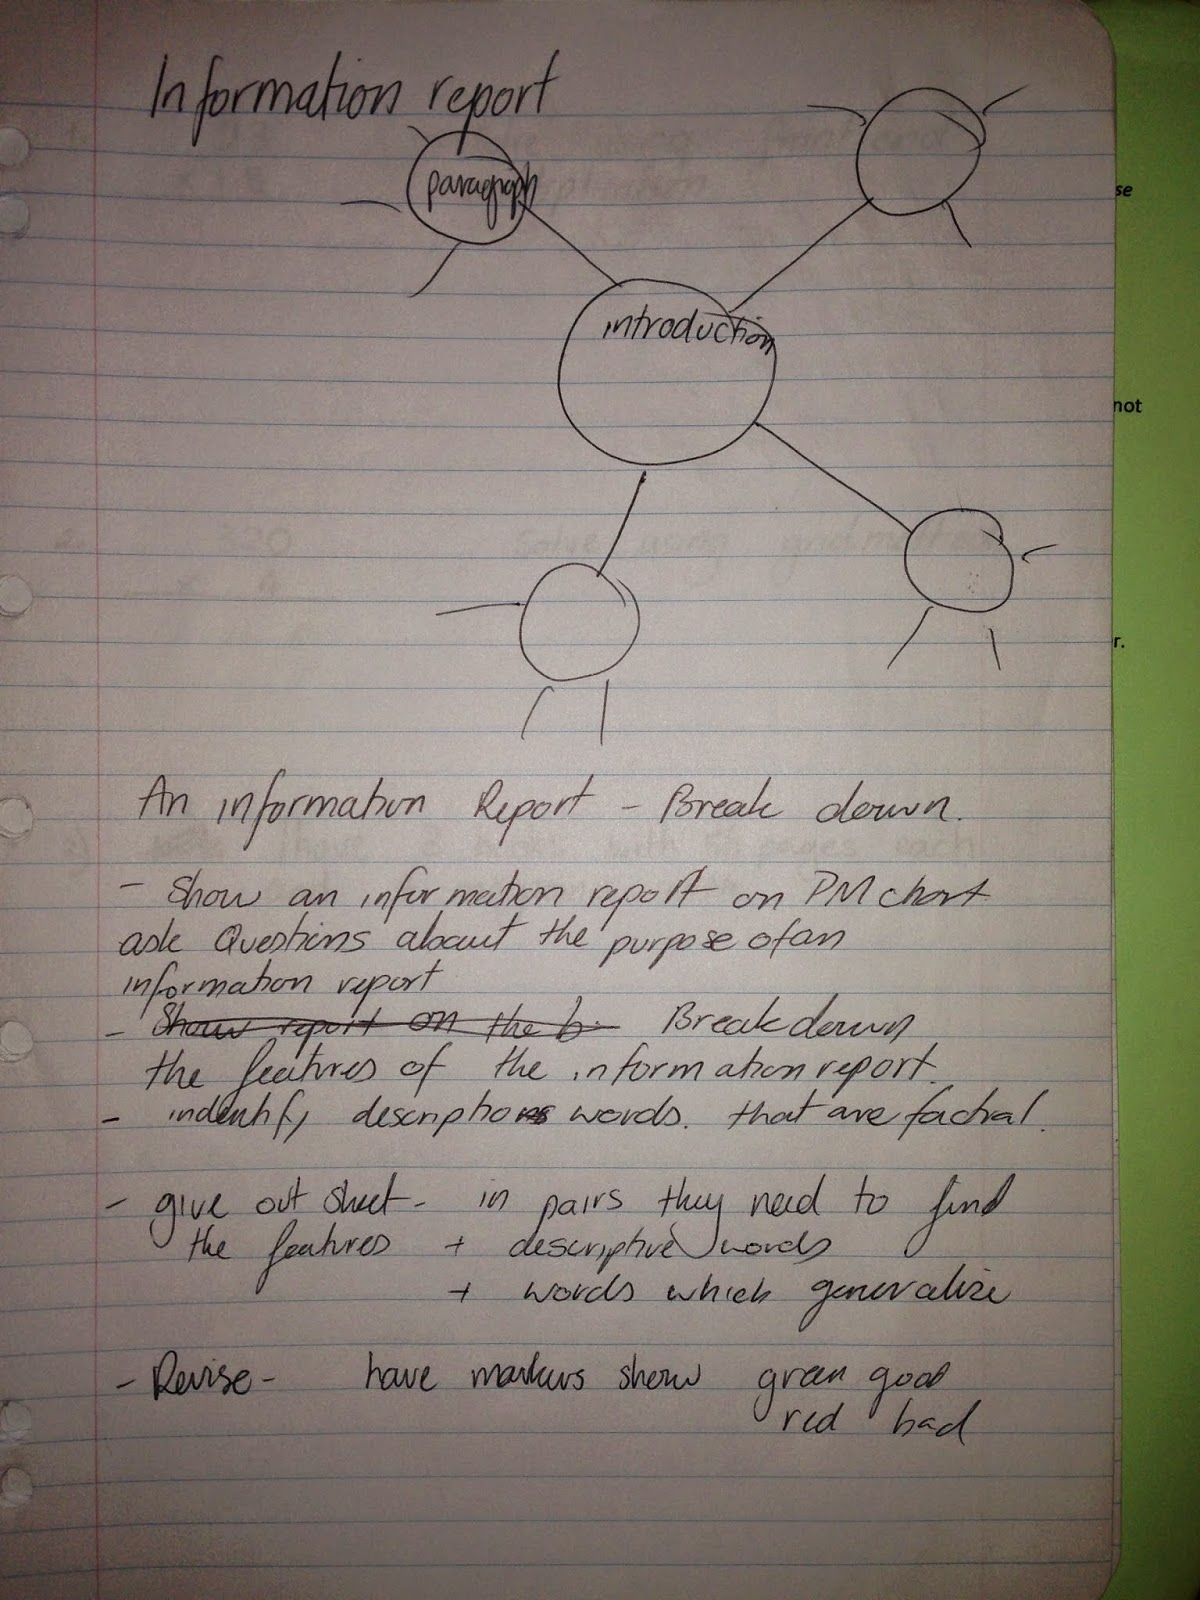 Information report
paragraph
se
introduction
not
r.
An information Report - Break down.
- Show an information report on PM chart
ask Questions about the purpose of an
information report
- Show report on the b. Breakdown
the features of the information report.
- indentify descriptions words. that are factual.
- give out sheet - in pairs they need to find
the features + descriptive words
+ words which generalize
- Revise - have markers show green good
red bad